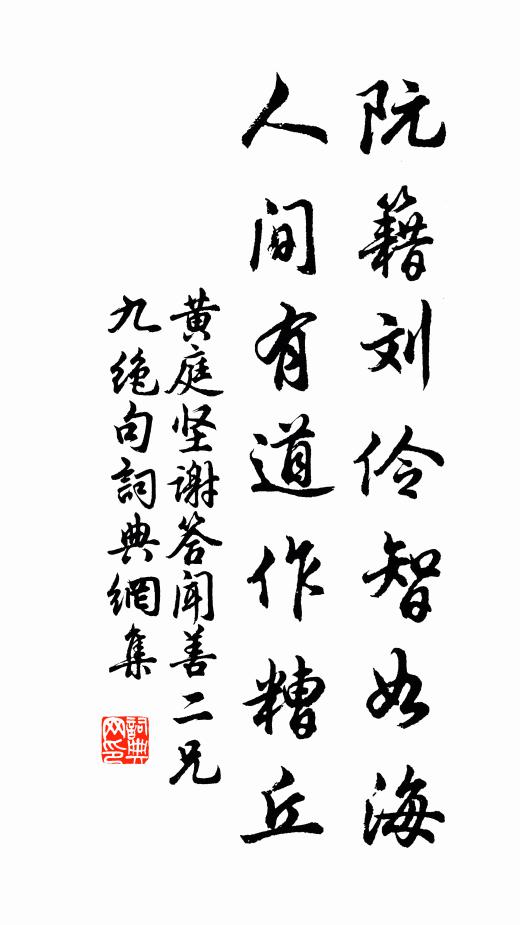 阮籍刘伶智如海
人间有道作糟丘
黄庭坚谢答闻善二兄
九绝句詞典網集
詞典
网印